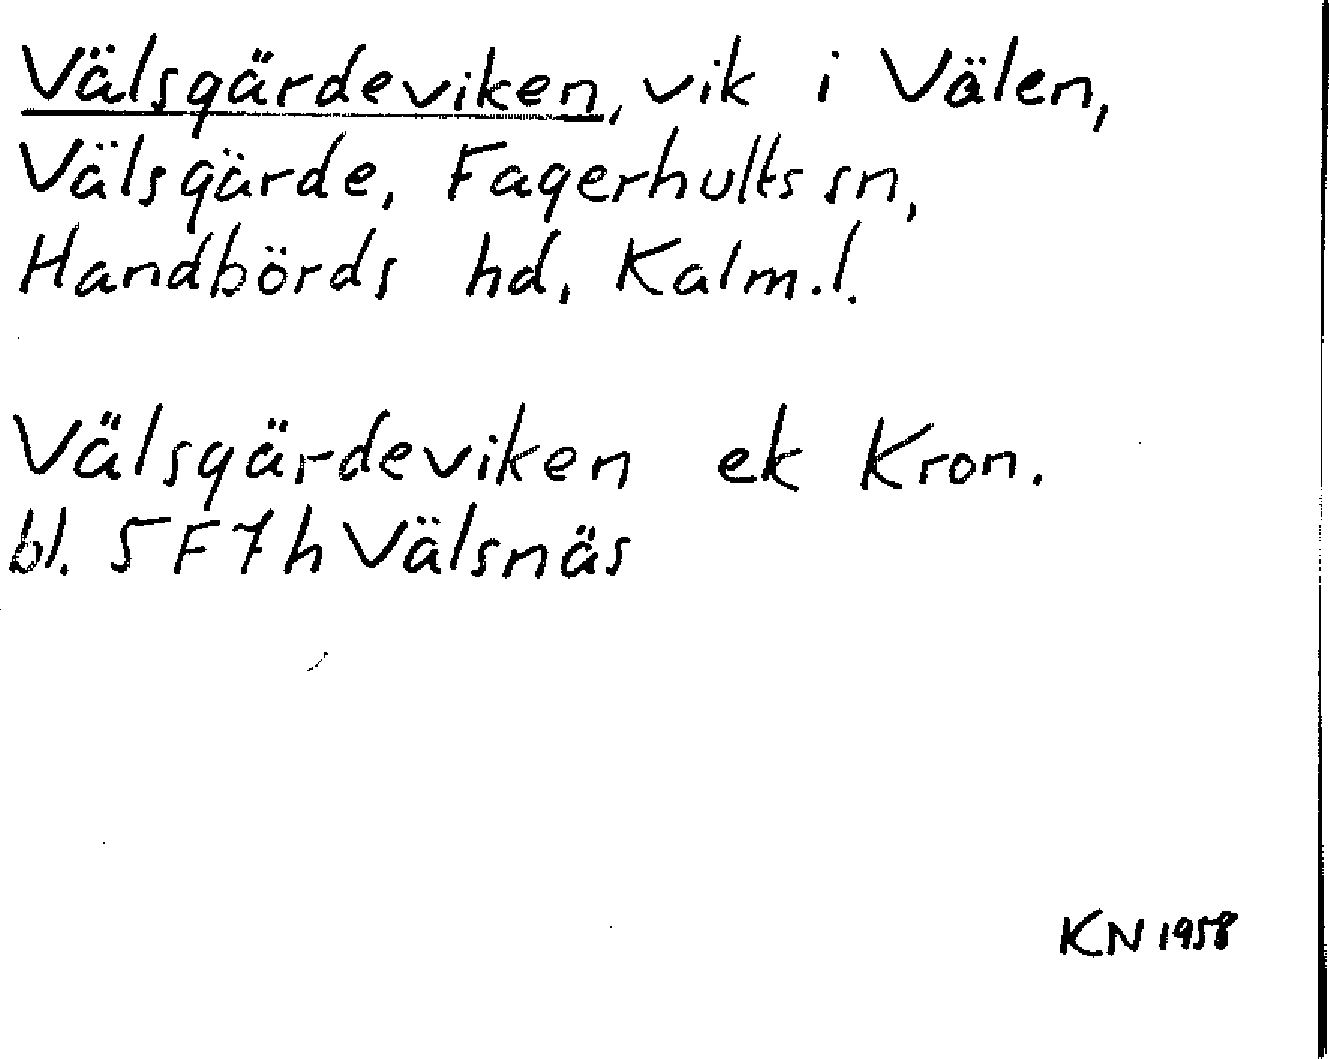 Välsgärdeviken, vik i Välen,
Välsgärde, Fagerhults sn,
Handbörds hd, Kalm.l.
Välsgärdeviken ek Kron.
bl. 5F7h Välsnäs
KN 1958